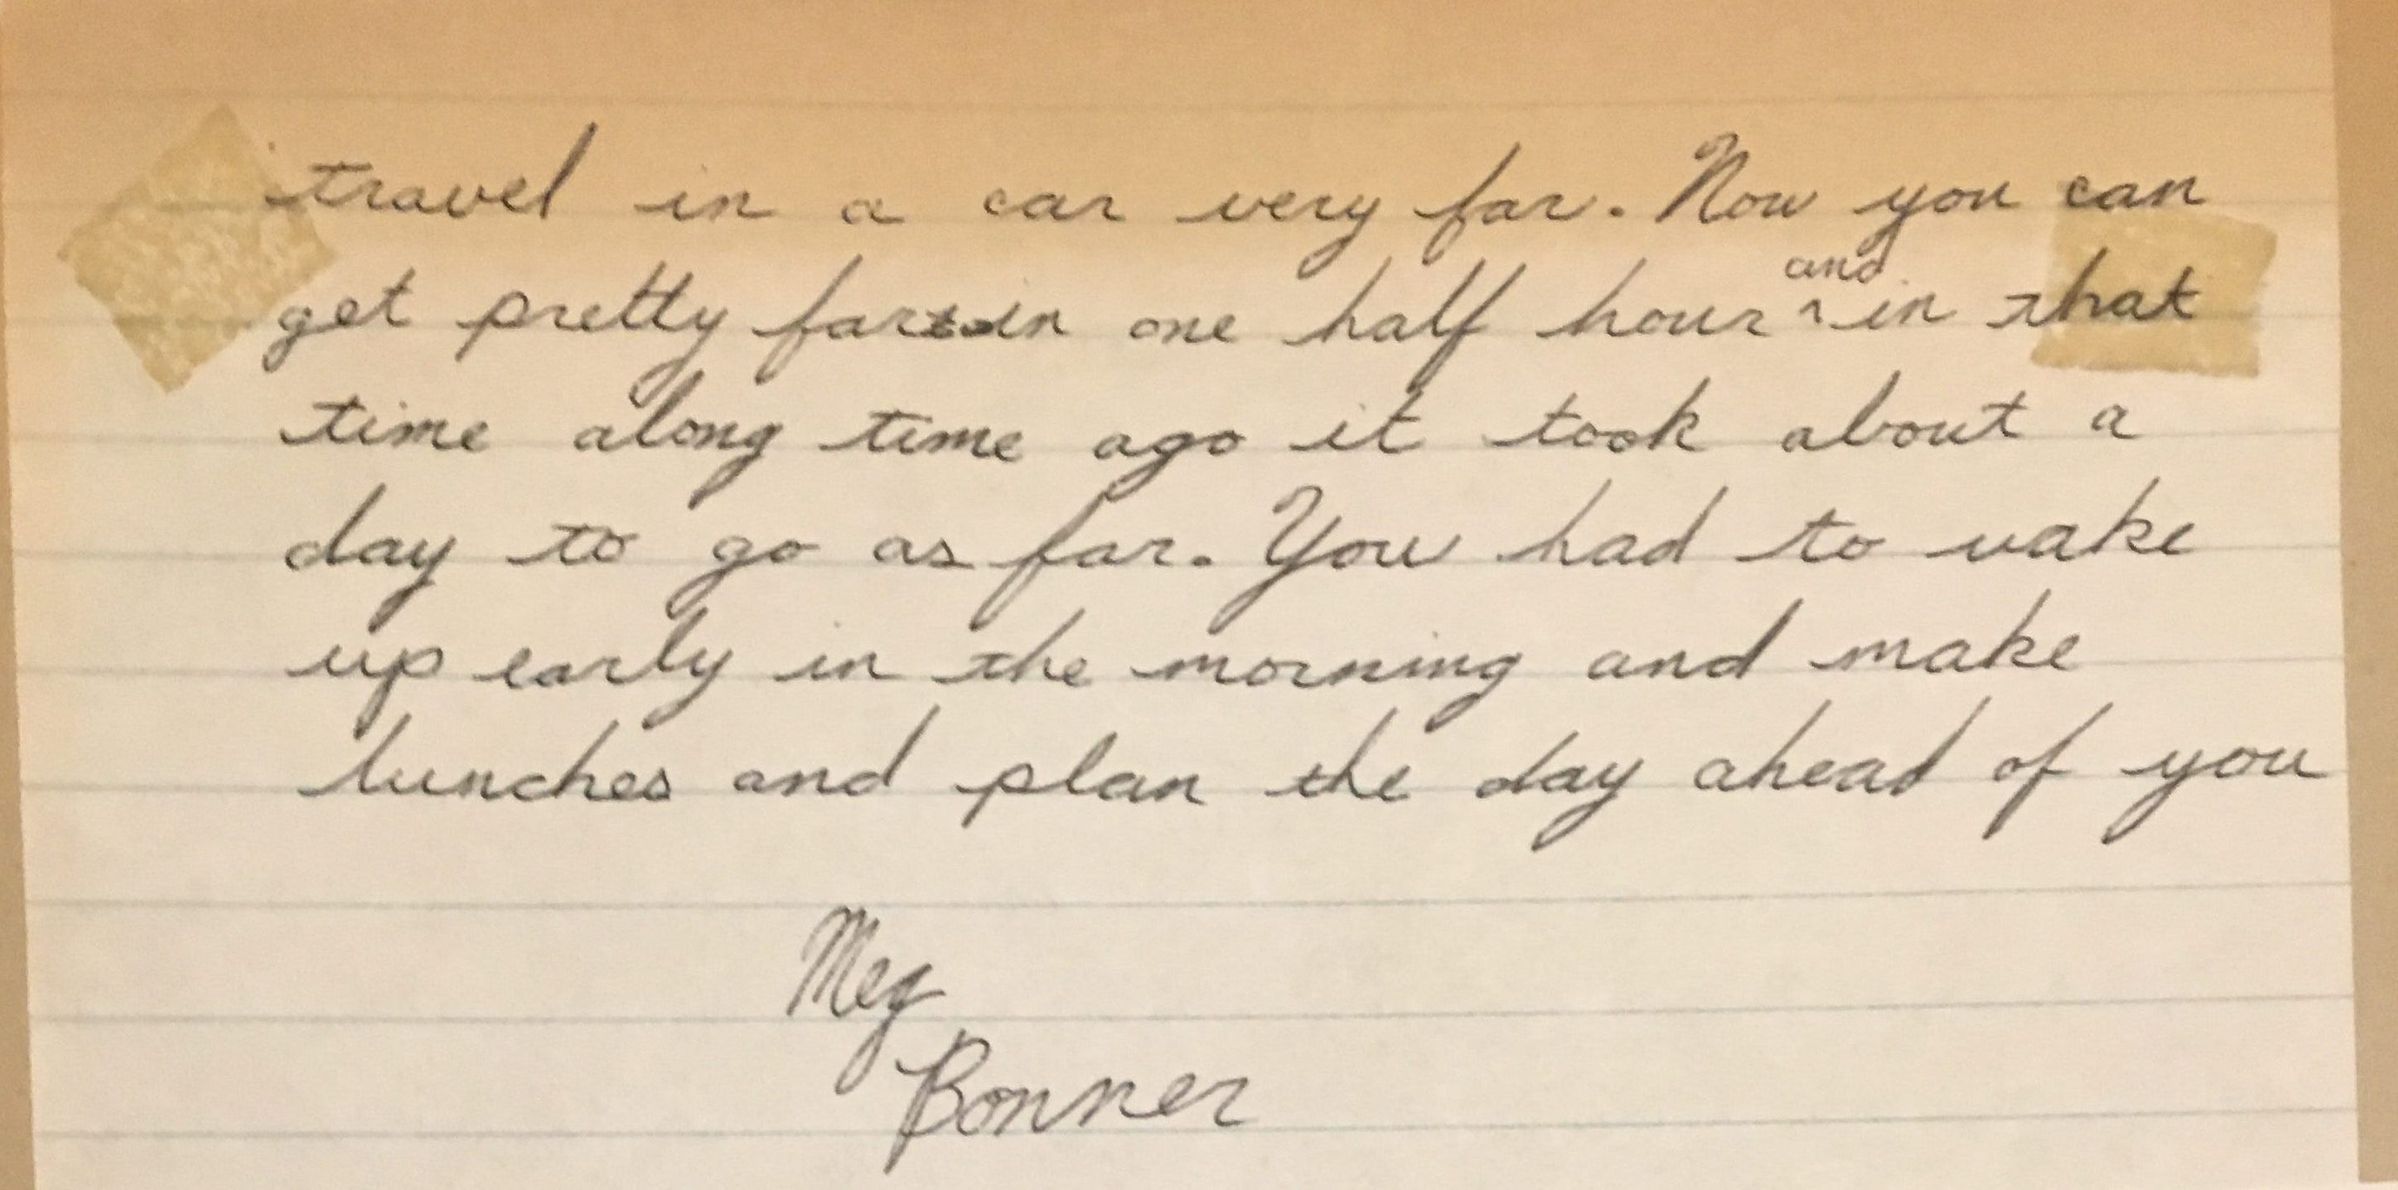 travel in a car very far. Now you can
get pretty far in one half hour ^and in that
time along time ago it took about a
day to go as far. You had to wake
up early in the morning and make
lunches and plan the day ahead of you
Meg
Bonner